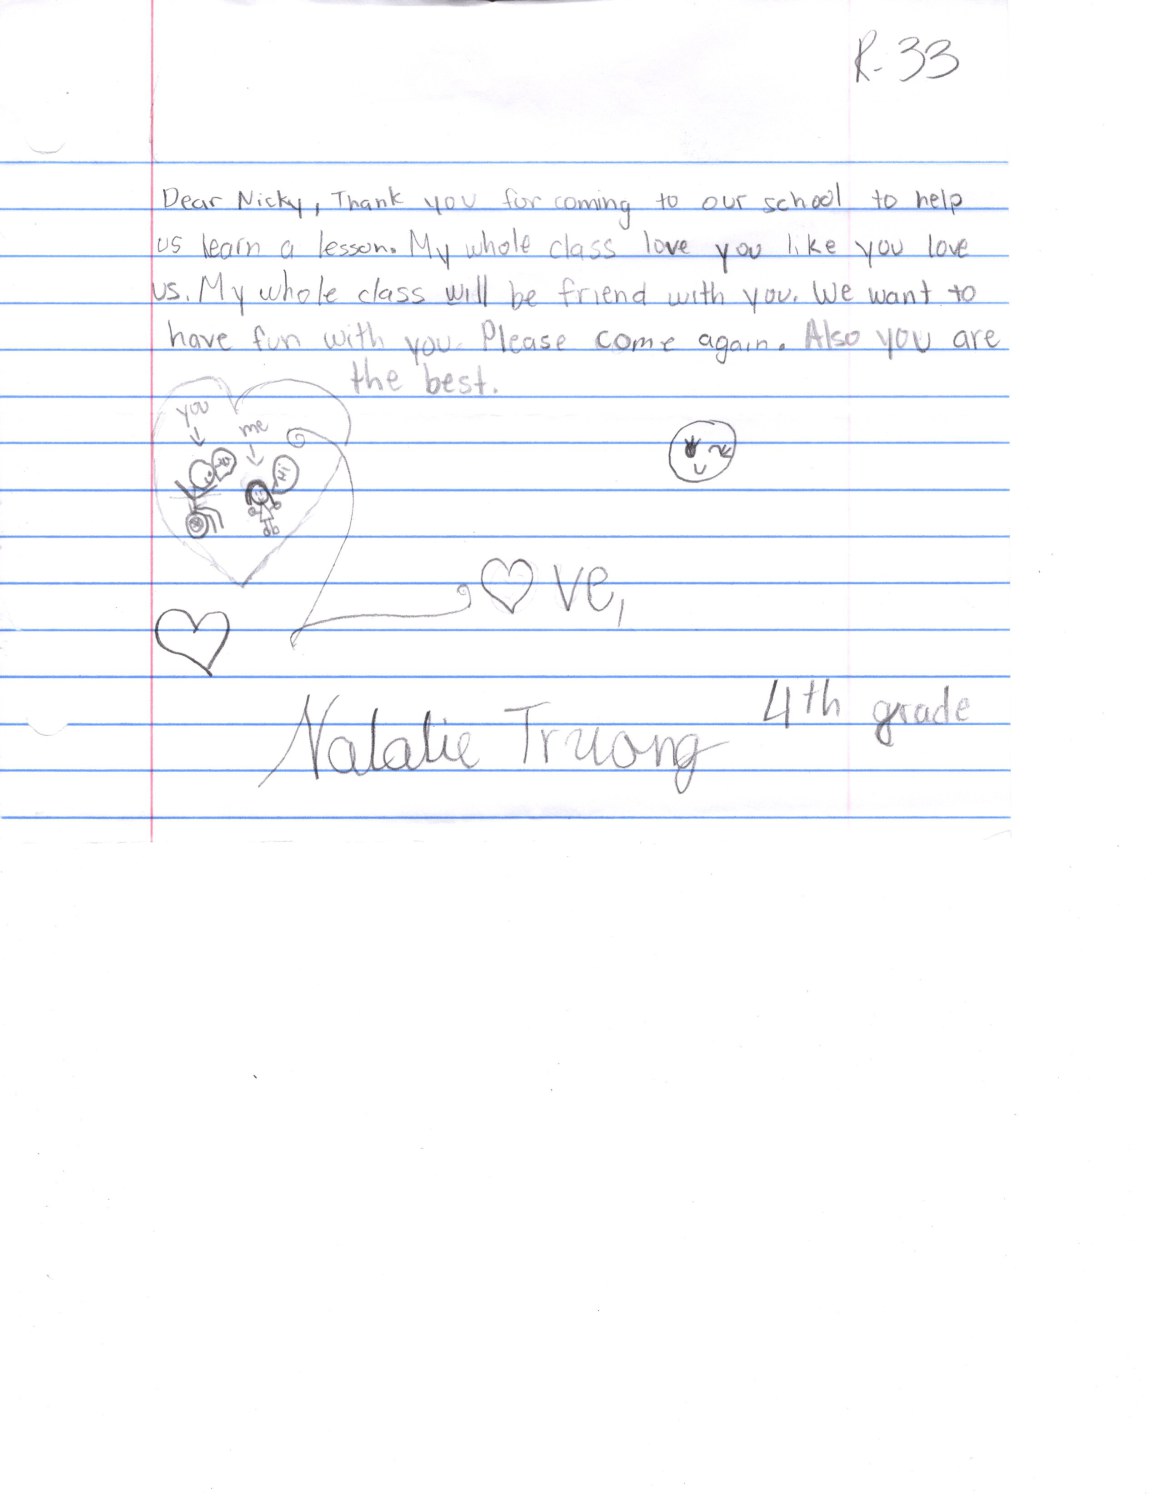 R-33
Dear Nicky, Thank you for coming to our school to help
us learn a lesson. My whole class love you like you love
us. My whole class will be friend with you. We want to
have fun with you. Please come again. Also you are
the best.
you
me
Hi
♡ve,
4th grade
Natalie Truong